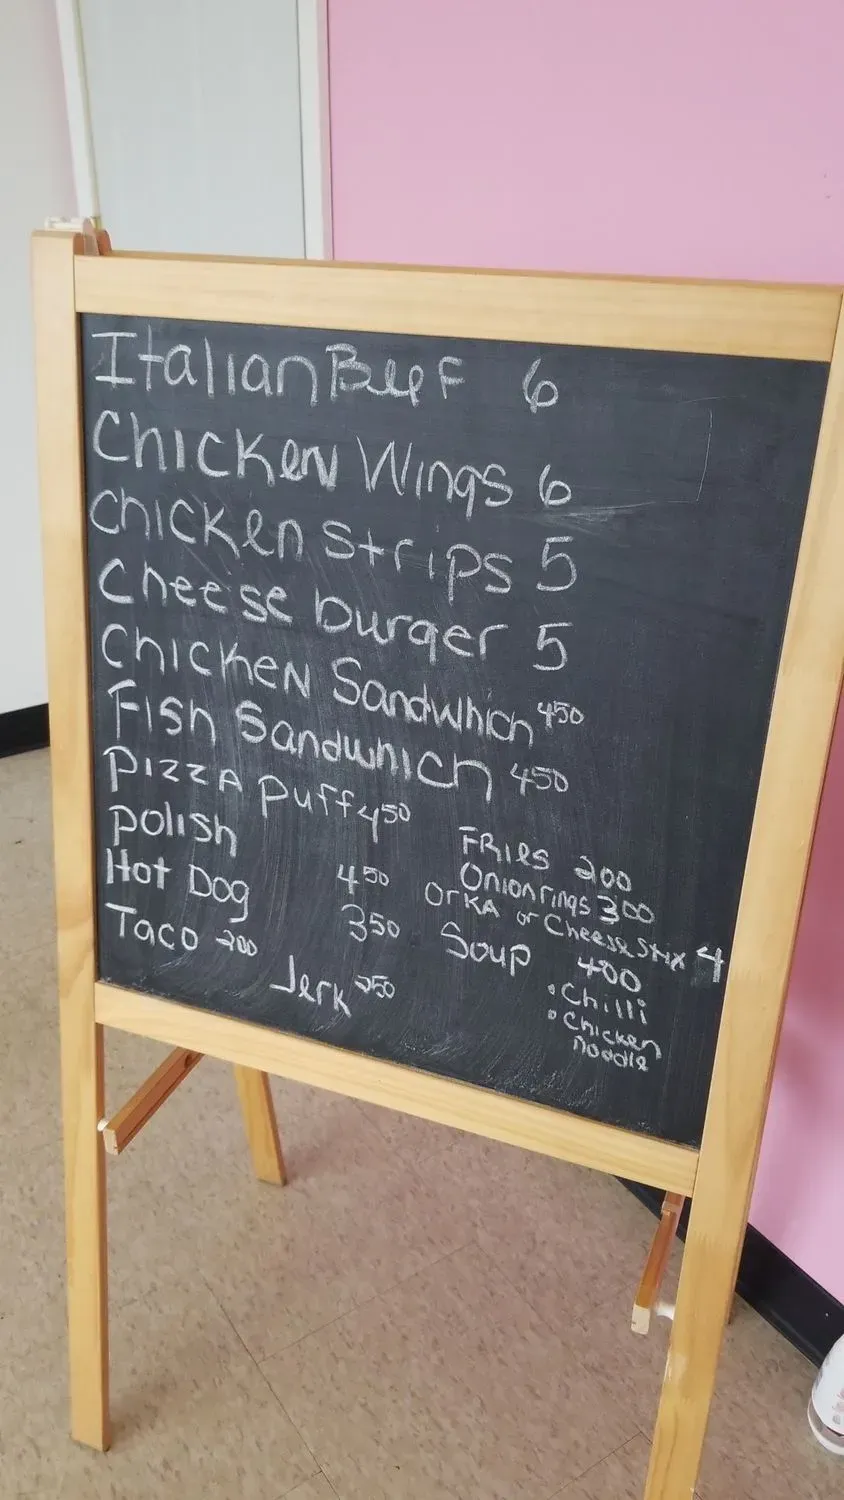 Italian Beef 6
Chicken Wings 6
Chicken Strips 5
Cheese burger 5
Chicken Sandwhich 450
Fish Sandwhich 450
Pizza Puff 450
Polish 450
Hot Dog 350
Taco 200
Jerk 250
Fries 200
Onion rings 300
Or KA or Cheese Stix 4
Soup 400
• Chilli
• Chicken
noodle